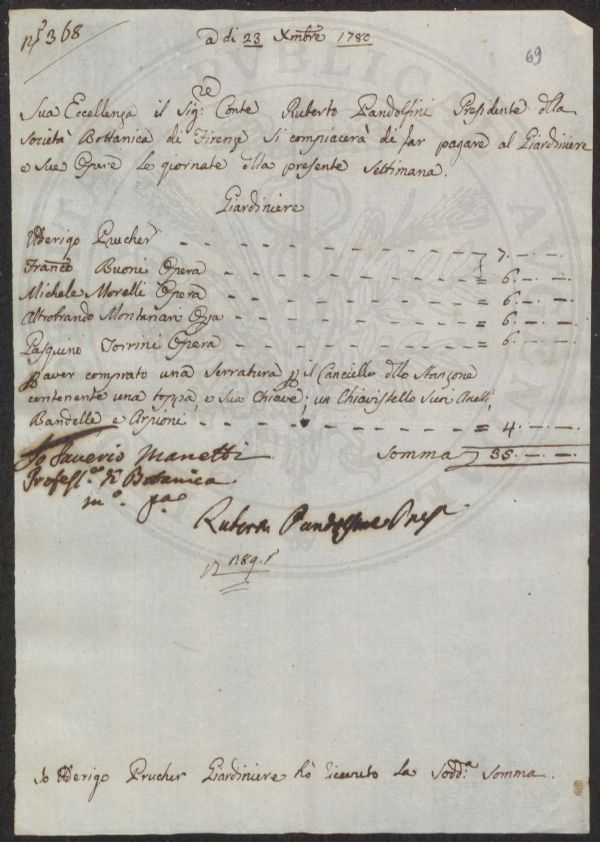 N° 368
a di 23 Xmbre 1780
69
Sua Eccellenza il Sig.re Conte Ruberto Pandolfini Presidente dlla
Società Bottanica di Firenze si compiacerà di far pagare al Giardiniere
e sue Opere le giornate dlla presente Settimana.
Giardiniere
Uderigo Prucher - - - - - - - - = 7. -. -
Franco Buoni Opera - - - - - - - = 6. -. -
Michele Morelli Opera - - - - - - - = 6. -. -
Altobrando Montanari Opa - - - - - - - = 6. -. -
Pasquino Torrini Opera - - - - - - - = 6. -. -
P aver comprato una Serratura p il Cancello dllo Stanzone
contenente una toppa e sua Chiave, un Chiavistello suoi Anelli,
Bandelle e Arpioni - - - - - - - = 4. -. -
Io Saverio Manetti Somma 35. -. -
Profess.re di Botanica
m.o p.a
Ruberto Pandolfini Pres.
189
Io Uderigo Prucher Giardiniere hò ricevuto la Sodd.a Somma.
PVBLICA